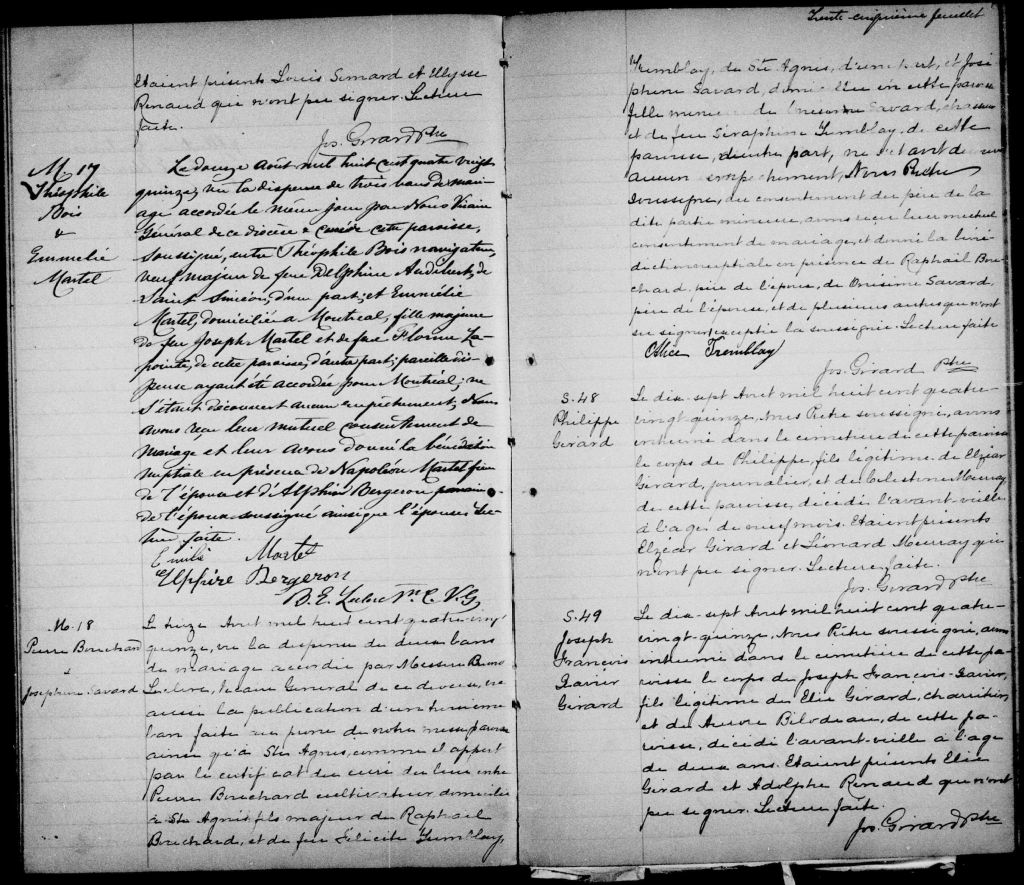 étaient présents Louis Simard et Ulysse
Renaud qui n'ont pu signer. Lecture
faite.
Jos. Girard Ptre
M 17
Théophile
Bois
&
Emmelié
Martel
Le douze Août mil huit cent quatre vingt
quinze, vu la dispense de trois bans de mari
age accordée le même jour par Nous Vicaire
Général de ce diocèse & curé de cette paroisse,
soussigné, entre Théophile Bois navigateur,
veuf majeur de feue Delphine Audibert, de
Saint Siméon, d'une part; et Emmélie
Martel, domiciliée à Montréal, fille majeure
de feu Joseph Martel et de feue Florine La-
pointe, de cette paroisse, d'autre part; pareille dis-
pense ayant été accordée pour Montréal; ne
s'étant découvert aucun empêchement, Nous
avons reçu leur mutuel consentement de
mariage et leur avons donné la bénédiction
nuptiale en présence de Napoléon Martel frère
de l'épouse et d'Alphire Bergeron
de l'époux soussigné ainsi que l'épouse. Lec-
ture faite.
Emilie Martel
Elpfire Bergeron
B. E. Leclerc Ptre C. V. G.
M. 18
Pierre Bouchard
&
Josephine Savard
Le treize Aout mil huit cent quatre-vingt
quinze, vu la dispense de deux bans
de mariage accordée par Messire Bruno
Leclerc, Vicaire General de ce diocese, vu
aussi la publication d'un troisieme
ban faite au prone de notre messe paroissiale
ainsi qu'à Ste Agnes, comme il appert
par le certificat du curé du lieu entre
Pierre Bouchard cultivateur domicilié
à Ste Agnès, fils majeur de Raphael
Bouchard, et de feu Félicité Tremblay,
Trente-cinquième feuillet
Tremblay, de Ste Agnes, d'une part, et José-
phine Savard, domiciliée en cette paroisse
fille mineure de Onesime Savard,
et de feu Séraphine Tremblay, de cette
paroisse, d'autre part, ne s'étant découvert
aucun empechement, Nous Prêtre
soussigné, du consentement du père de la
dite partie mineure, avons reçu leur mutuel
consentement de mariage, et donné la béné
diction nuptiale en présence de Raphaël Bou-
chard, père de l'époux, de Onesime Savard,
père de l'épouse, et de plusieurs autres qui n'ont
su signer, exceptée la soussignée. Lecture faite
Tremblay
Jos. Girard Ptre
S. 48
Philippe
Girard
Le dix-sept Aout mil huit cent quatre-
vingt-quinze, Nous Prêtre soussigné, avons
inhumé dans le cimetière de cette paroisse
le corps de Philippe, fils légitime de Elzéar
Girard, journalier, et de Celestine Meunay,
de cette paroisse, décédé l'avant-veille
à l'age de neuf mois. Etaient présents
Elzéar Girard et Léonard Meunay qui
n'ont pu signer. Lecture faite.
Jos. Girard Ptre
S. 49
Joseph
François
Xavier
Girard
Le dix-sept Aout mil huit cent quatre-
vingt-quinze, Nous Prêtre soussigné, avons
inhumé dans le cimetière de cette pa-
roisse le corps de Joseph François-Xavier,
fils légitime de Elie Girard, charretier,
et de Aurore Bilodeau, de cette pa-
roisse, décédé l'avant-veille à l'age
de deux ans. Etaient présents Elie
Girard et Adolphe Renaud qui n'ont
pu signer. Lecture faite.
Jos. Girard Ptre